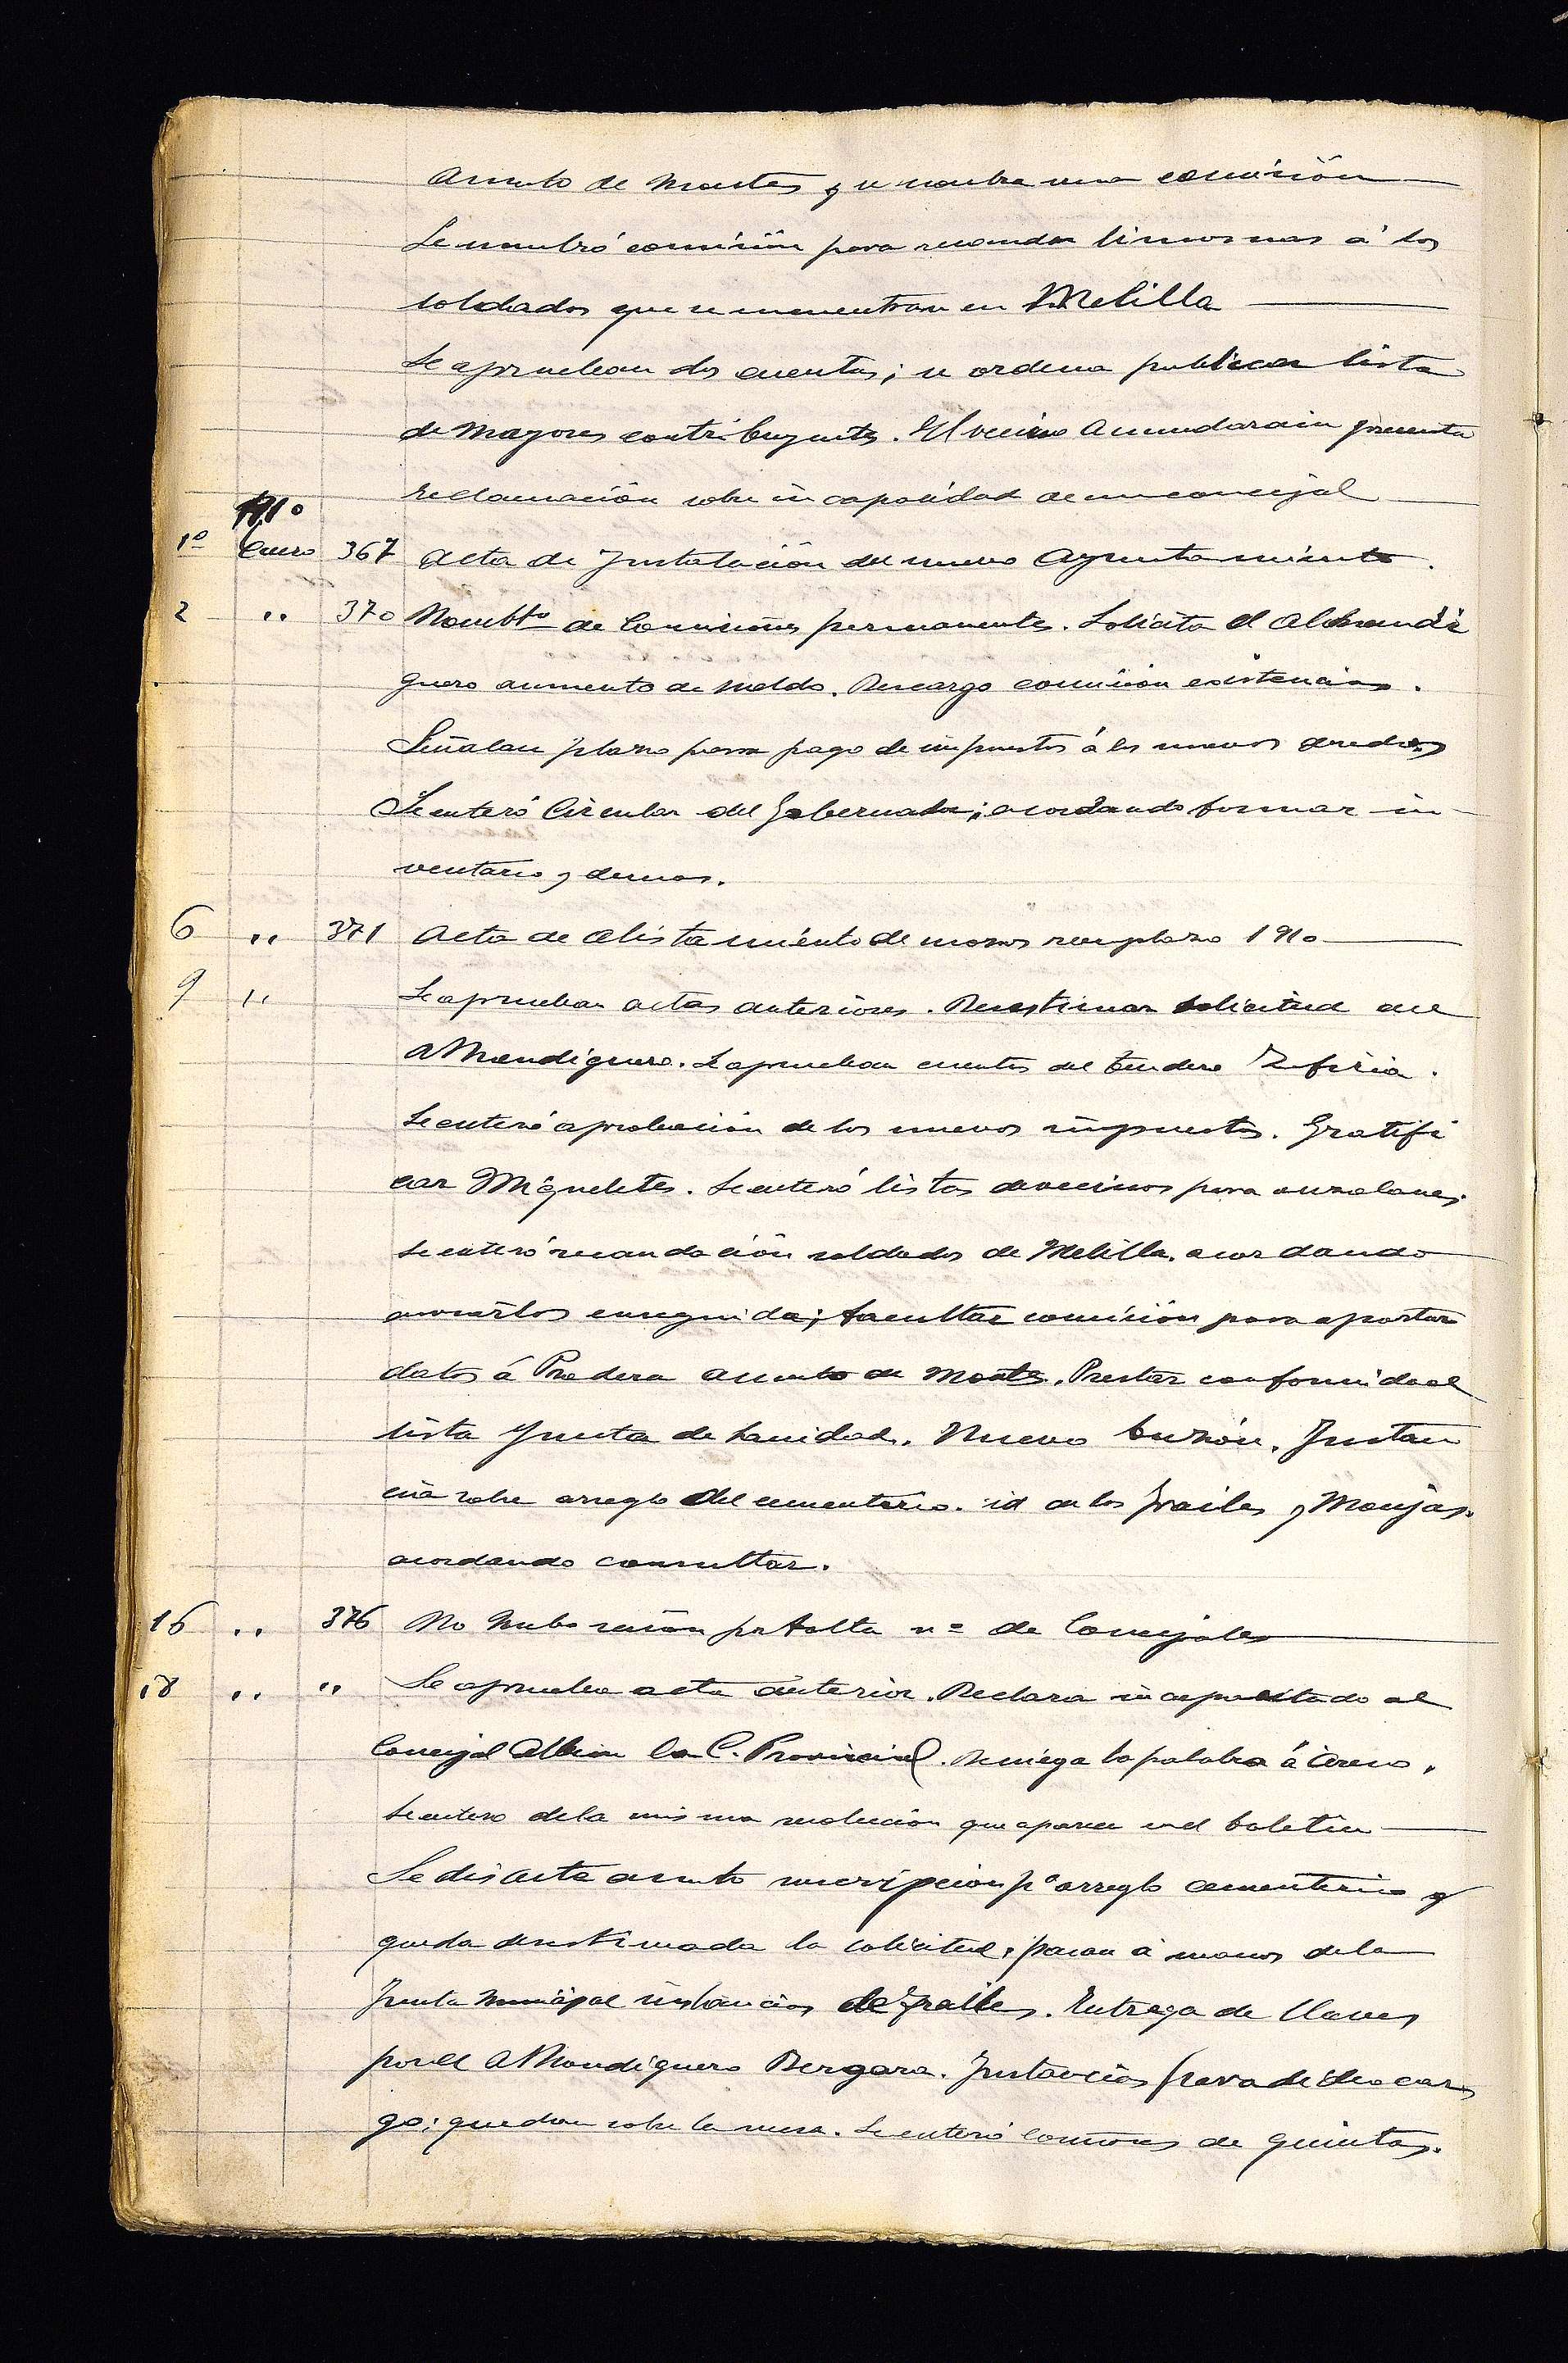 asunto de Montes y se nombra una comisión
Se nombró comisión para recaudar limosnas á los
soldados que se encuentran en Melilla
Se aprueban dos cuentas; se ordena publicar lista
de mayores contribuyentes. El vecino Amundarain presenta
reclamación sobre incapacidad de un concejal
1910
1º Enero 367 Acta de Instalación del nuevo Ayuntamiento.
2 " 370 Nombtº de Comisiones permanentes. Solicita el Alhondi
guero aumento de sueldo. comisión existencias.
Señalan plazo para pago de impuestos á los nuevos
Se enteró Circular del Gobernador; acordando formar in-
ventario y demas.
6 " 371 Acta de alistamiento de mozos reemplazo 1910
9 " Se aprueban actas anteriores. Desestimar solicitud del
Alhondiguero. Se aprueban cuentas del tendero
Se enteró aprobación de los nuevos impuestos. Gratifi
car Miqueletes. Se enteró listas de vecinos para
Se enteró recaudación soldados de Melilla, acordando
enseguida; facultar comisión para aportar
datos á Pradera asunto de Montes. Prestar conformidad
lista Junta de Sanidad. Nuevo buzón. Instan
cia sobre arreglo del cementerio. id de los frailes y Monjas.
acordando consultar.
16 " 376 No hubo sesión por falta nº de Concejales
18 " " Se aprueba acta anterior. Declara incapacitado al
Concejal la C. Provincial. Deniega la palabra á
Se entero de la misma resolución que aparece en el boletin
Se discute asunto suscripcion pª arreglo cementerio y
queda desestimada la solicitud, pasan á manos de la
Junta Municipal instancias de frailes. Entrega de llaves
por el Alhondiguero Bergara. Instancias para dicho car
go; quedan sobre la mesa. Se enteró de quintas.